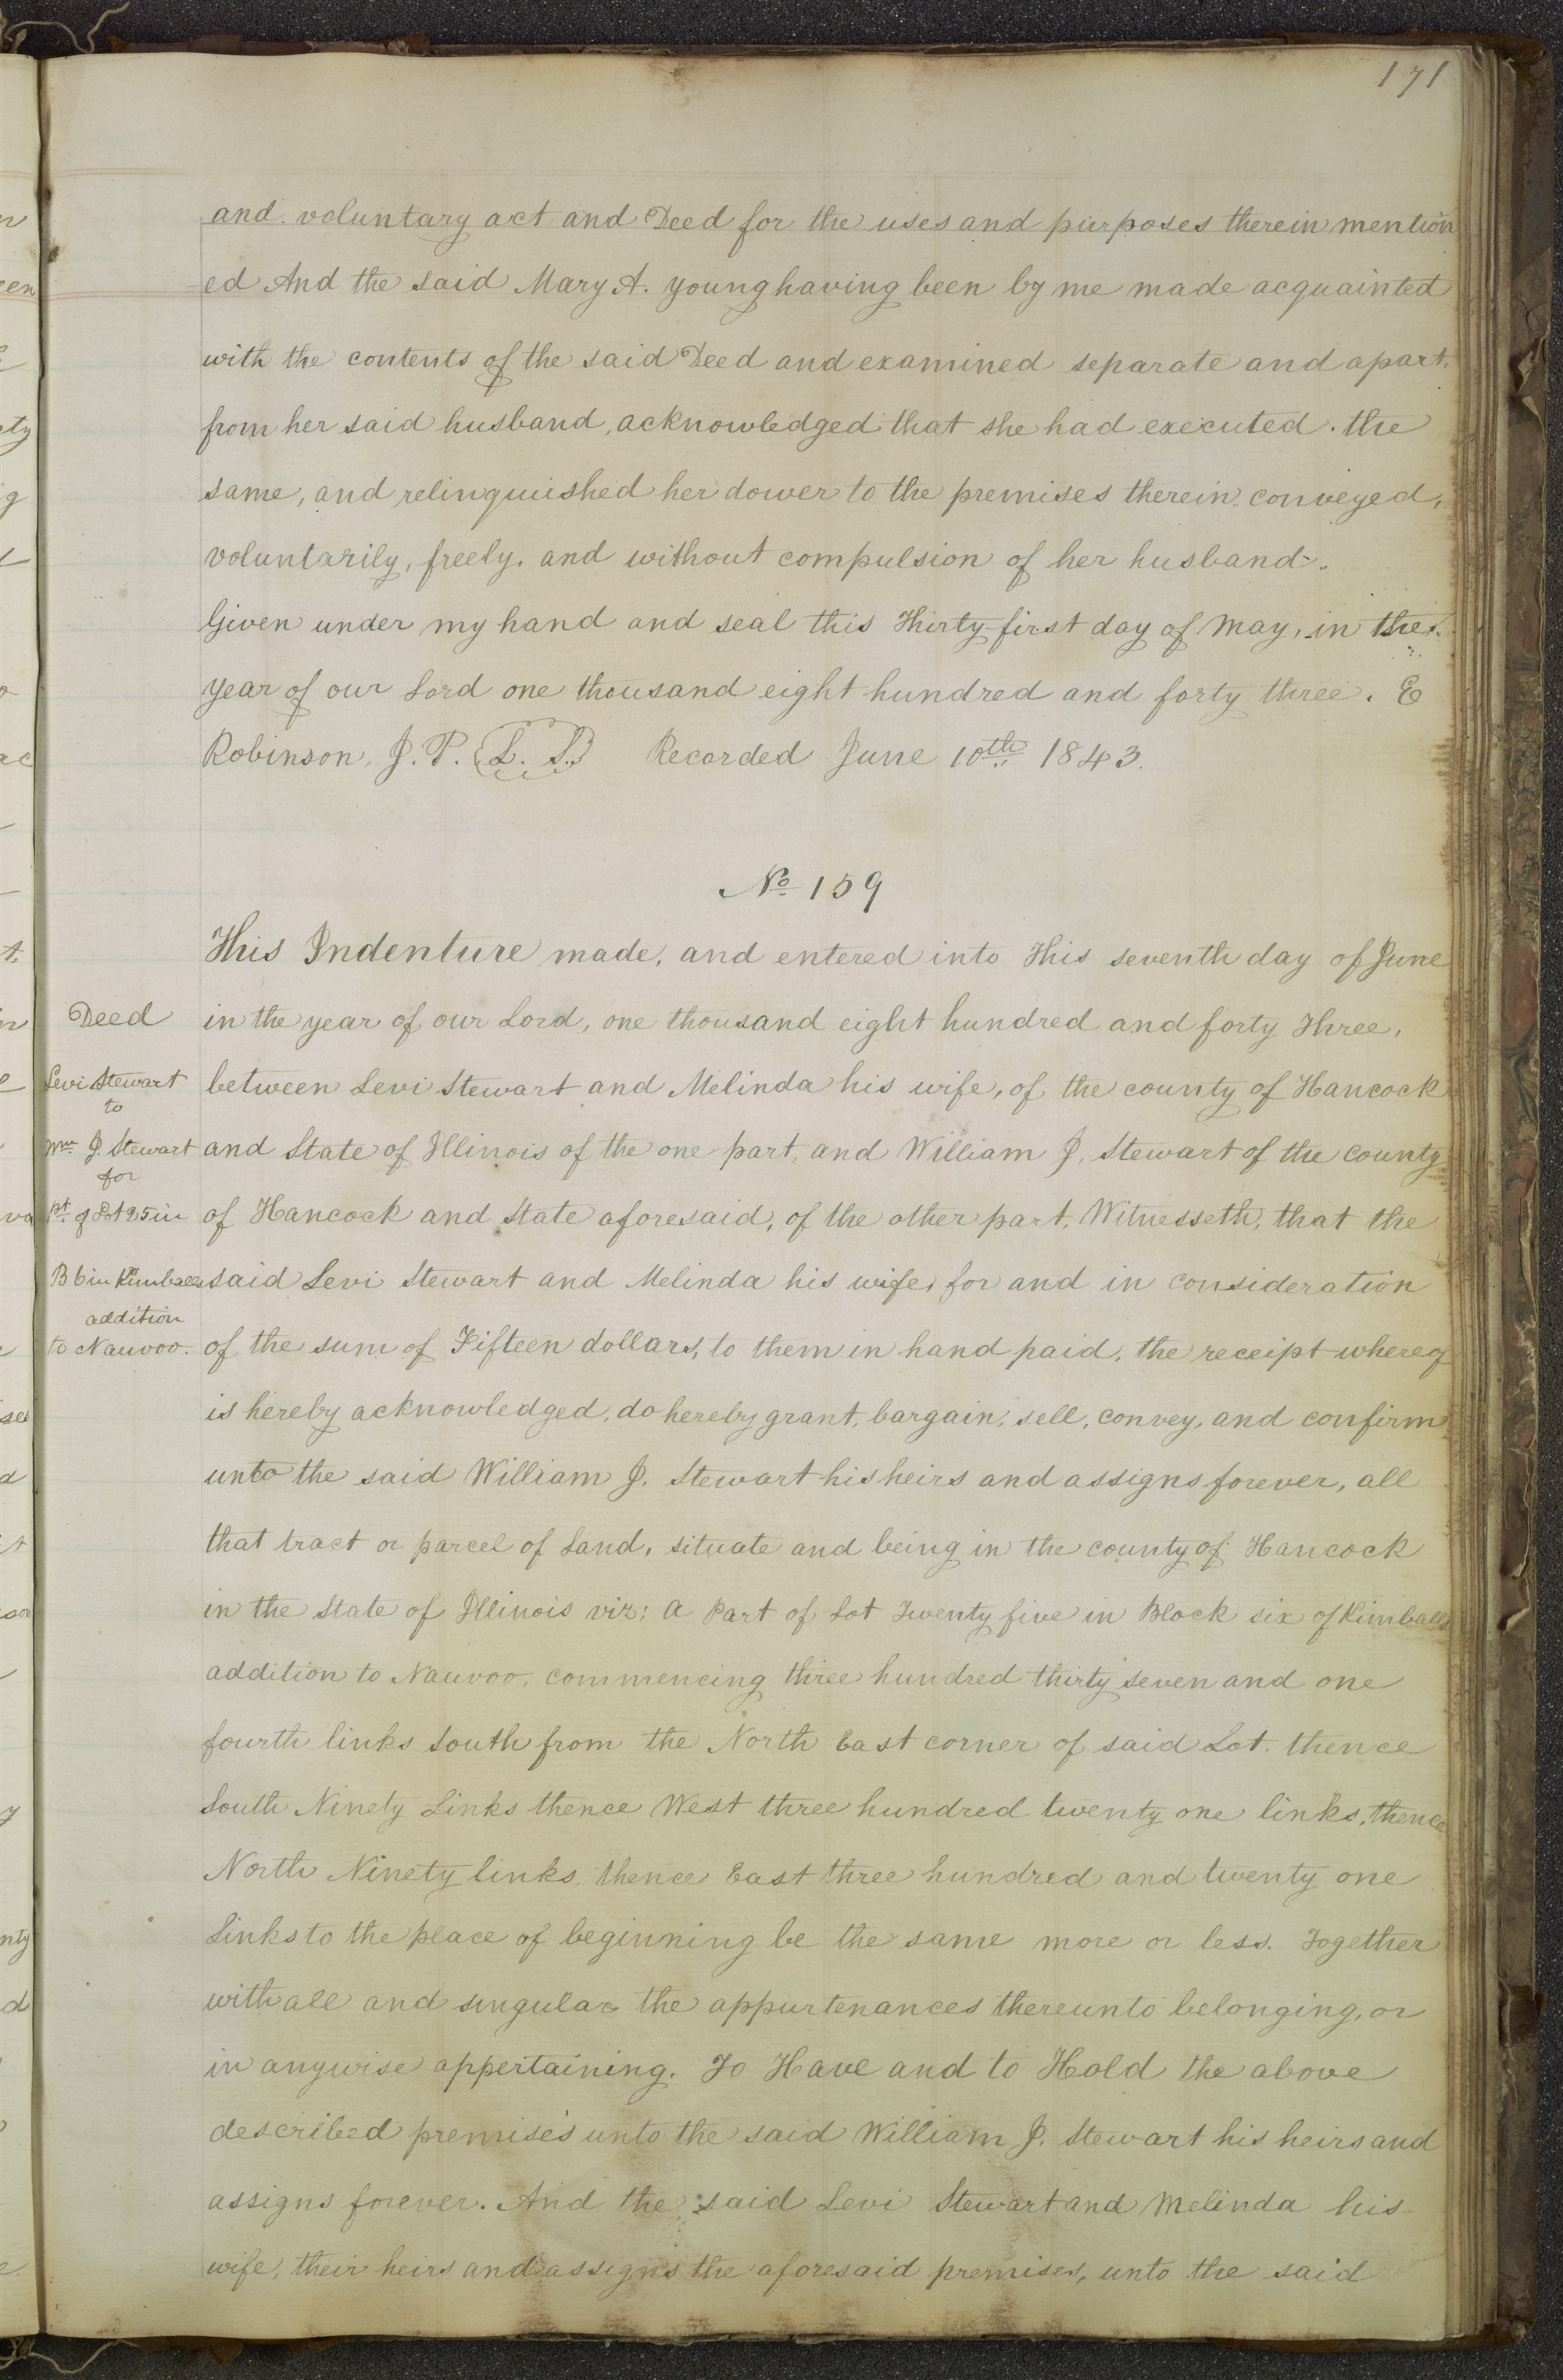 171
and voluntary act and Deed for the uses and purposes therein mention
ed And the said Mary A. Young having been by me made acquainted
with the contents of the said Deed and examined separate and apart,
from her said husband, acknowledged that she had executed. the
same, and relinquished her dower to the premises therein conveyed,
voluntarily, freely, and without compulsion of her husband.
Given under my hand and seal this Thirty-first day of May, in the
year of our Lord one thousand eight hundred and forty three. E
Robinson, J. P. L. S. Recorded June 10th 1843.
No 159
This Indenture made, and entered into This seventh day of June
in the year of our Lord, one thousand eight hundred and forty Three,
between Levi Stewart and Melinda his wife, of the county of Hancock
and State of Illinois of the one part, and William J. Stewart of the county
of Hancock and State aforesaid, of the other part, Witnesseth, that the
said Levi Stewart and Melinda his wife, for and in consideration
of the sum of Fifteen dollars, to them in hand paid, the receipt whereof
is hereby acknowledged, do hereby grant, bargain, sell, convey, and confirm
unto the said William J. Stewart his heirs and assigns forever, all
that tract or parcel of Land, situate and being in the county of Hancock
in the State of Illinois viz: A Part of Lot Twenty five in Block six of Kimballs
addition to Nauvoo, commencing three hundred thirty seven and one
fourth links South from the North East corner of said Lot. thence
South Ninety Links thence West three hundred twenty one links, thence
North Ninety links, thence East three hundred and twenty one
Links to the place of beginning be the same more or less. Together
with all and singular the appurtenances thereunto belonging, or
in anywise appertaining. To Have and to Hold the above
described premises unto the said William J. Stewart his heirs and
assigns forever. And the said Levi Stewart and Melinda his
wife, their heirs and assigns the aforesaid premises, unto the said
Deed
Levi Stewart
to
Wm J. Stewart
for
pt. of Lot 25 in
B 6 in Kimballs
addition
to Nauvoo.